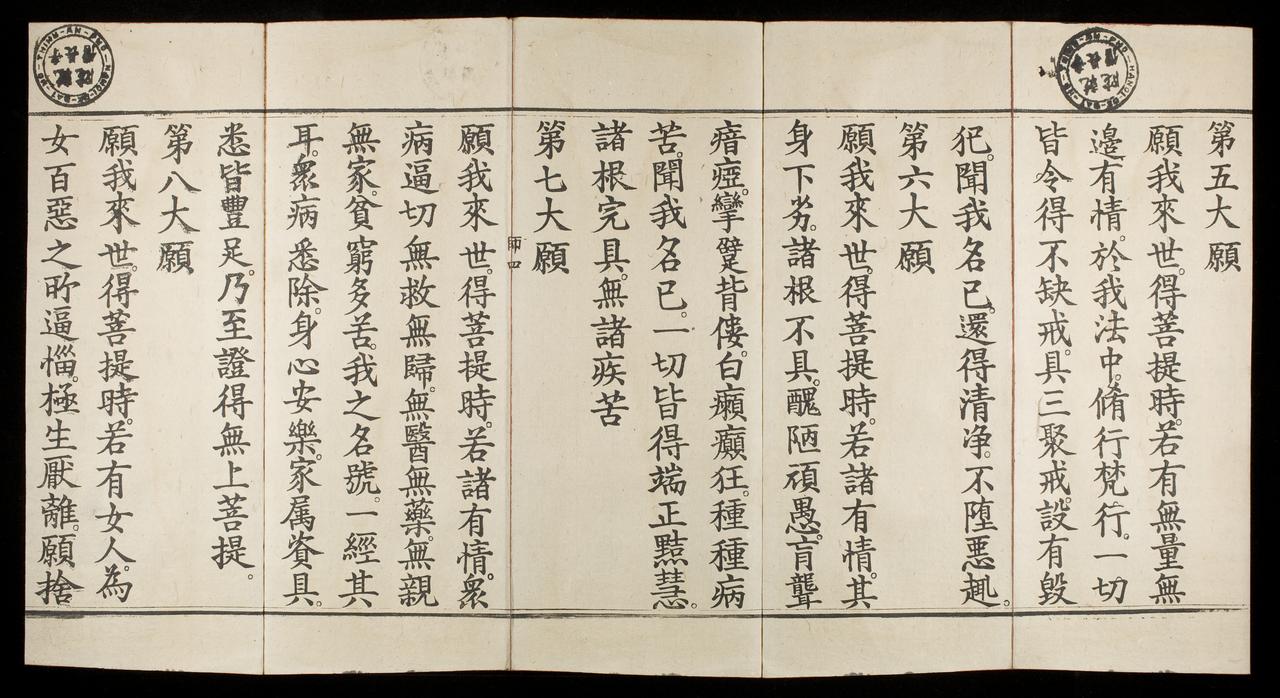 第五大願
願我來世。得菩提時。若有無量無
邊有情。於我法中。脩行梵行。一切
皆令得不缺戒。具三聚戒。設有毀
犯。聞我名已。還得清净。不墮惡趣。
第六大願
願我來世。得菩提時。若諸有情。其
身下劣。諸根不具。醜陋頑愚。盲聾
瘖瘂。攣躄背僂。白癩癲狂。種種病
苦。聞我名已。一切皆得端正黠慧。
諸根完具。無諸疾苦
師四
第七大願
願我來世。得菩提時。若諸有情。衆
病逼切無救無歸。無醫無藥。無親
無家。貧窮多苦。我之名號。一經其
耳。衆病悉除。身心安樂。家属資具。
悉皆豐足。乃至證得無上菩提。
第八大願
願我來世。得菩提時。若有女人。為
女百惡之所逼惱。極生厭離。願捨